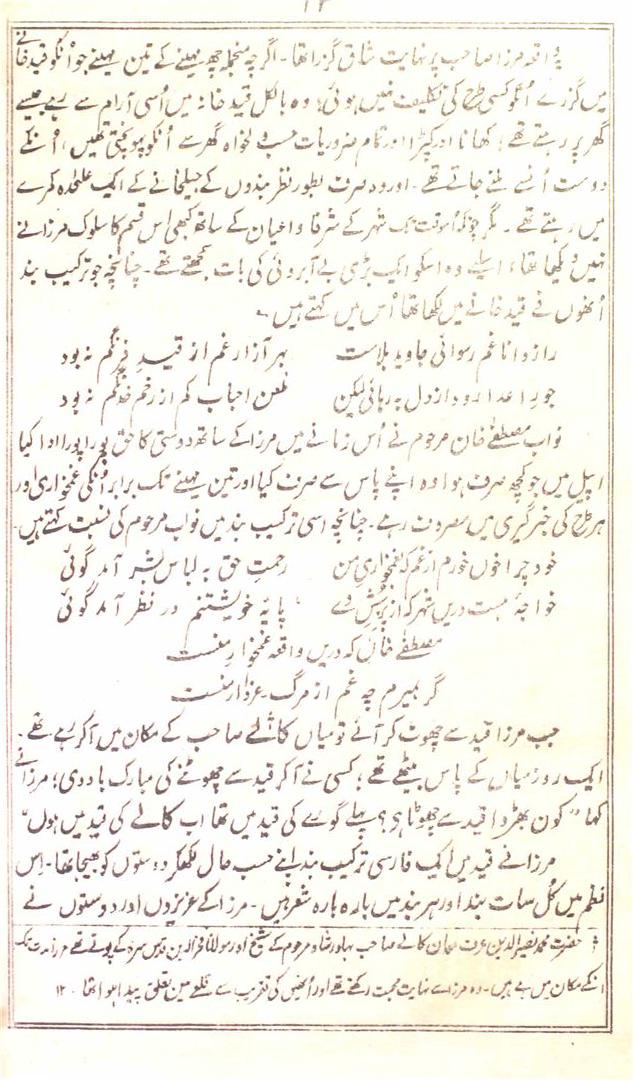 یہ واقعہ مرزا صاحب پر نہایت شاق گزرا تھا۔ اگرچہ منجملہ چھ مہینے کے تین مہینے جو اُنکو قید خانے
میں گزرے اُنکو کسی طرح کی تکلیف نہیں ہوئی؛ وہ بالکل قید خانہ میں اُسی آرام سے رہے جیسے
گھر پر رہتے تھے؛ کھانا اور کپڑا اور تمام ضروریات حسب دلخواہ گھر سے اُنکو پہونچتی تھیں، اُنکے
دوست اُنسے ملنے جاتے تھے۔ اور وہ صرف بطور نظر بندوں کے جیلخانے کے ایک علٰحدہ کمرے
میں رہتے تھے۔ مگر چونکہ اُسوقت تک شہر کے شرفا و اعیان کے ساتھ کبھی اس قسم کا سلوک مرزا نے
نہیں دیکھا تھا؛ اسلیے وہ اسکو ایک بڑی بے آبروئی کی بات سمجھتے تھے۔ چنانچہ جو ترکیب بند
اُنھوں نے قید خانے میں لکھا تھا اُس میں کہتے ہیں
راز دانا غم رسوائی جاوید بلاست بہر آزار غم از قیدِ فرنگم نہ بود
جورِ اعدا رود از دل بہ رہائی لیکن طعن احباب کم از زخم خدنگم نہ بود
نواب مصطفےٰ خان مرحوم نے اُس زمانے میں مرزا کے ساتھ دوستی کا حق پورا پورا ادا کیا
اپیل میں جو کچھ صرف ہوا وہ اپنے پاس سے صرف کیا اور تین مہینے تک برابر اُنکی غمخواری اور
ہر طرح کی خبر گیری میں مصروف رہے۔ چنانچہ اسی ترکیب بند میں نواب مرحوم کی نسبت کہتے ہیں۔
خود چرا خوں خورم از غم کہ بغمخواریِ من رحمتِ حق بہ لباس بشر آمد گوئی
خواجۂ ہست دریں شہر کہ از پرسشِ وے پایۂ خویشتنم در نظر آمد گوئی
مصطفےٰ خاں کہ دریں واقعہ غمخوارِ منست
گر بمیرم چہ غم از مرگ عزادار منست
جب مرزا قید سے چھوٹ کر آئے تو میاں کالے صاحب کے مکان میں آکر رہے تھے۔
ایک روز میاں کے پاس بیٹھے تھے؛ کسی نے آکر قید سے چھوٹنے کی مبارکباد دی؛ مرزا نے
کہا "کون بھڑوا قید سے چھوٹا ہے؟ پہلے گورے کی قید میں تھا اب کالے کی قید میں ہوں"
مرزا نے قید میں ایک فارسی ترکیب بند اپنے حسب حال لکھکر دوستوں کو بھیجا تھا۔ اِس
نظم میں کُل سات بند اور ہر بند میں بارہ بارہ شعر ہیں۔ مرزا کے عزیزوں اور دوستوں نے
حضرت محمد نصیرالدین عرف میاں کالے صاحب بہادر شاہ مرحوم کے شیخ اور مولانا فخرالدین قدس سرہ کے پوتے تھے مرزا مدت تک
انکے مکان میں رہے ہیں۔ وہ مرزا سے نہایت محبت رکھتے تھے اور اُنھیں کی تقریب سے قلعے میں تعلق پیدا ہوا تھا۔ ۱۲